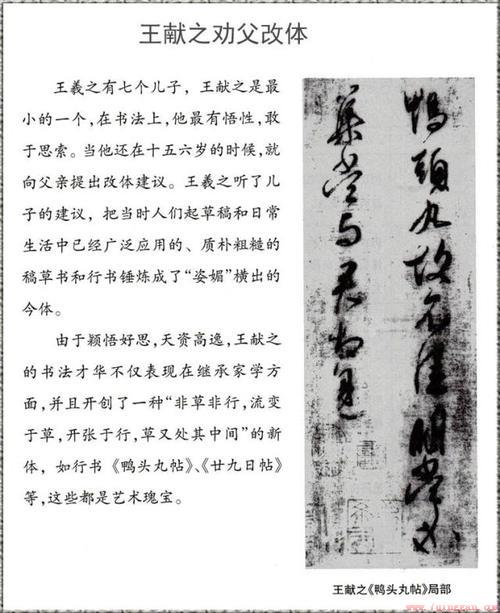 王献之劝父改体
王羲之有七个儿子，王献之是最
小的一个，在书法上，他最有悟性，敢
于思索。当他还在十五六岁的时候，就
向父亲提出改体建议。王羲之听了儿
子的建议，把当时人们起草稿和日常
生活中已经广泛应用的、质朴粗糙的
稿草书和行书锤炼成了“姿媚”横出的
今体。
由于颖悟好思，天资高逸，王献之
的书法才华不仅表现在继承家学方
面，并且开创了一种“非草非行，流变
于草，开张于行，草又处其中间”的新
体，如行书《鸭头丸帖》、《廿九日帖》
等，这些都是艺术瑰宝。
鸭頭丸故不佳明當必
集當与君相見
王献之《鸭头丸帖》局部